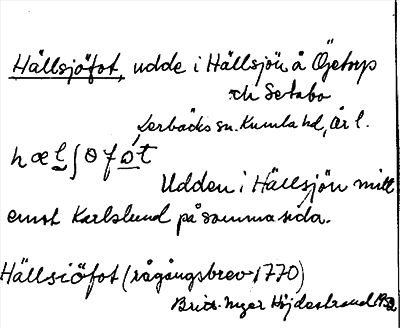 Hällsjöfot, udde i Hällsjön å Öjetorp
och Setabo
Lerbäcks sn. Kumla hd, Ör l.
hæl̬ʃɵfɷ̀t
Udden i Hällsjön mitt
emot Karlslund på samma sida.
Hällsiöfot (rågångsbrev 1770)
Britt-Inger Höjdestrand